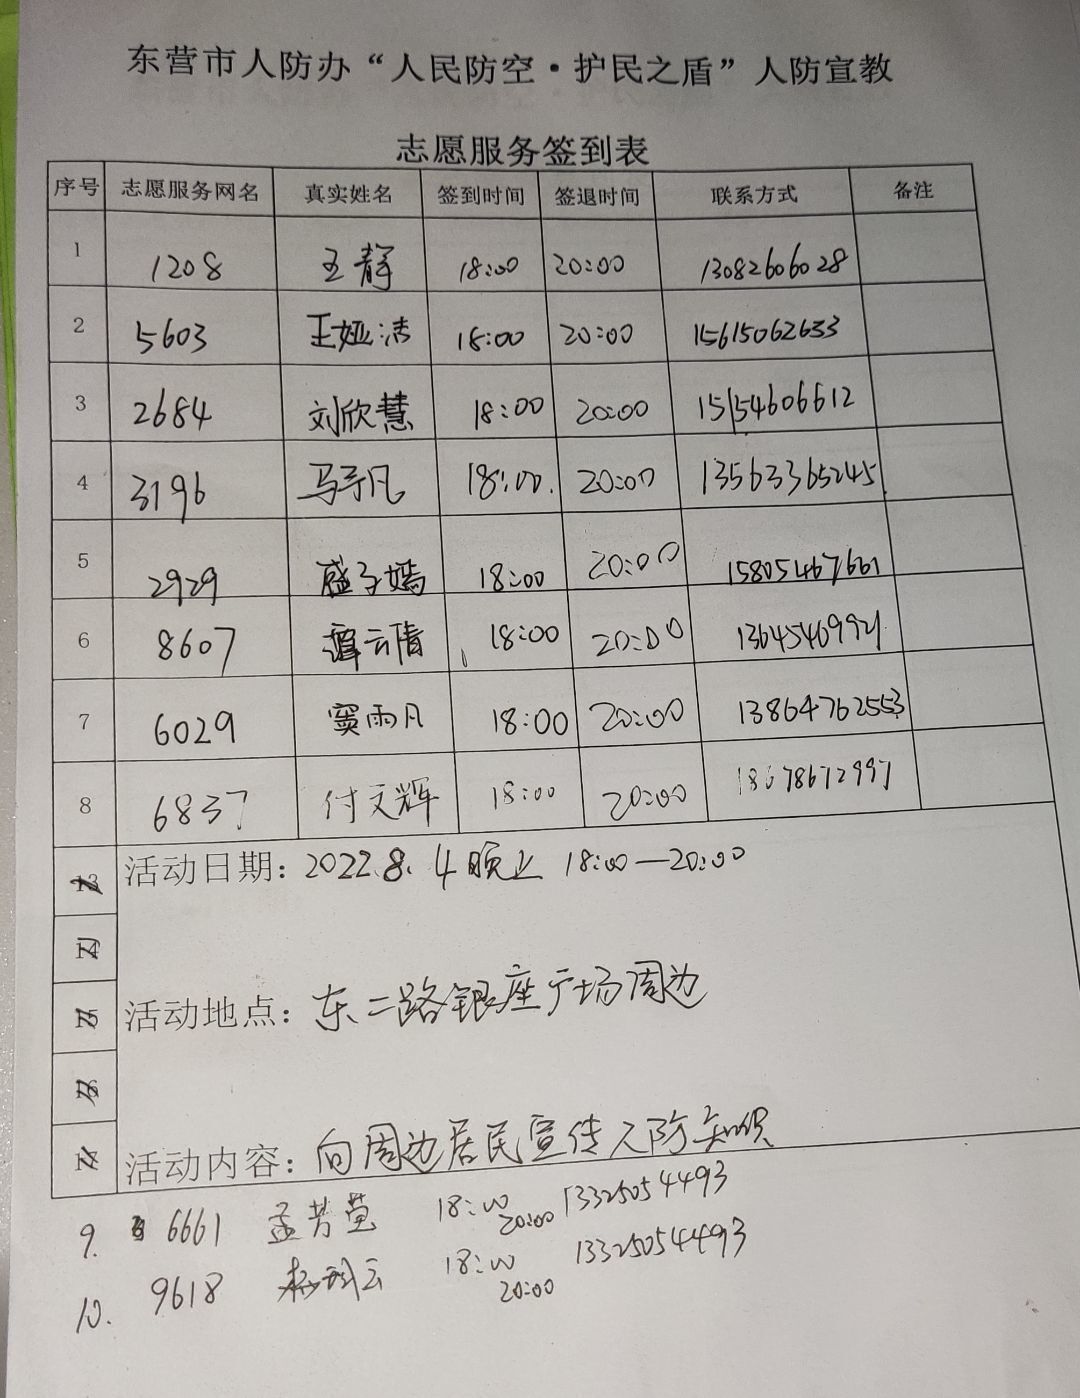 东营市人防办“人民防空·护民之盾”人防宣教
志愿服务签到表
序号 志愿服务网名 真实姓名 签到时间 签退时间 联系方式 备注
1 1208 王静 18:00 20:00 13082606028
2 5603 王娅洁 18:00 20:00 15615062633
3 2684 刘欣慧 18:00 20:00 15154606612
4 3196 马子凡 18:00. 20:00 13563365245
5 2929 盛子嫣 18:00 20:00 15805467661
6 8607 谭云倩 18:00 20:00 13645469921
7 6029 窦雨凡 18:00 20:00 13864762553
8 6837 付文辉 18:00 20:00 18678672997
13 活动日期：2022.8.4晚上 18:00—20:00
14
15 活动地点：东二路银座广场周边
16
活动内容：向周边居民宣传人防知识
9. 6661 孟芳萱 18:00 20:00 13325054493
10. 9618 18:00 20:00 13325054493